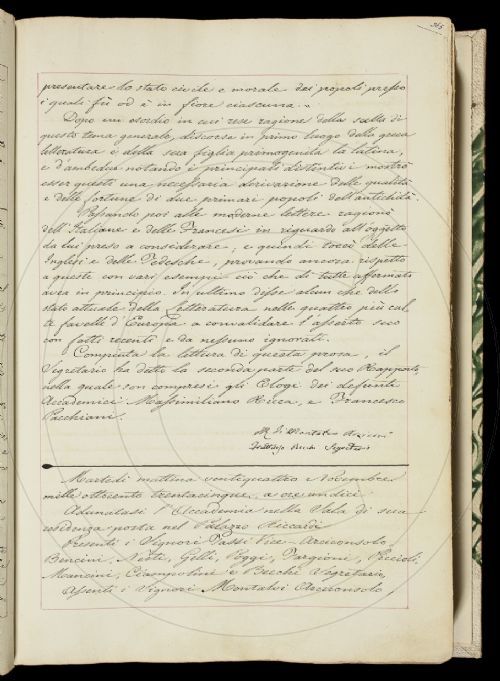 365
presentare lo stato civile e morale dei popoli presso
i quali fù od è in fiore ciascuna.
Dopo un esordio in cui rese ragione della scelta di
questo tema generale, discorse in primo luogo della greca
letteratura e della sua figlia primogenita la latina,
e d'ambedue notando i principali distintivi mostrò
esser questi una necessaria derivazione delle qualità
e delle fortune di due primari popoli dell'antichità.
Passando poi alle moderne lettere ragionò
dell'Italiane e delle Francesi in riguardo all'oggetto
da lui preso a considerare, e quindi toccò delle
Inglesi e delle Tedesche, provando ancora rispetto
a queste con vari esempi ciò che di tutte affermato
avea in principio. In ultimo disse alcun che dello
stato attuale della Letteratura nelle quattro più cul
te favelle d'Europa a convalidare l'asserto suo
con fatti recenti e da nessuno ignorati.
Compiuta la lettura di questa prosa, il
Segretario ha detto la seconda parte del suo Rapporto
nella quale son compresi gli Elogi dei defunti
Accademici Massimiliano Ricca, e Francesco
Pacchiani.
Montalvo Arcicon
Fruttuoso Becchi Segretario
Martedì mattina ventiquattro Novembre
mille ottocento trentacinque, a ore undici
Adunatasi l'Accademia nella Sala di sua
residenza posta nel Palazzo Riccardi
Presenti i Signori Tassi Vice-Arciconsolo,
Bencini, Nesti, Gelli, Poggi, Targioni, Riccioli,
Mancini, Ciampolini e Becchi Segretario,
Assenti i Signori Montalvi Arciconsolo,